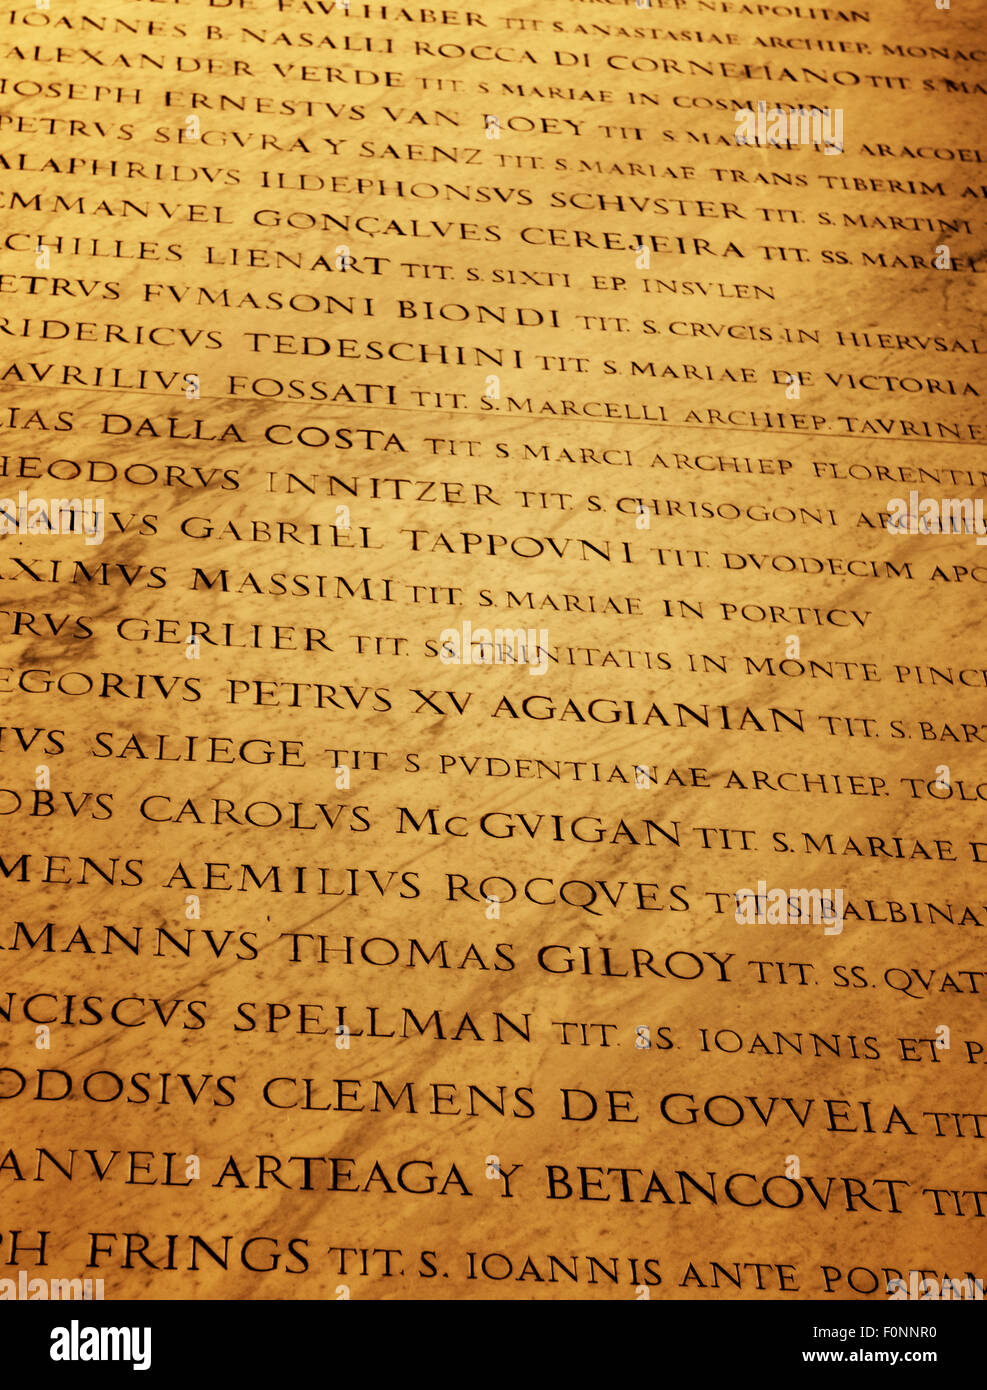 DE FAVLHABER TIT S. ANASTASIAE ARCHIEP. MONAC
ARCHIEP. NEAPOLITAN
IOANNES B. NASALLI ROCCA DI CORNELIANO TIT S. MA
ALEXANDER VERDE TIT S MARIAE IN COSMEDIN
IOSEPH ERNESTVS VAN ROEY TIT S MARIAE IN ARACOEL
PETRVS SEGVRA Y SAENZ TIT S. MARIAE TRANS TIBERIM A
ALAPHRIDVS ILDEPHONSVS SCHVSTER TIT S. MARTINI
EMMANVEL GONÇALVES CEREJEIRA TIT SS. MARCEL
ACHILLES LIENART TIT. S. SIXTI EP. INSVLEN
ETRVS FVMASONI BIONDI TIT. S. CRVCIS IN HIERVSAL
RIDERICVS TEDESCHINI TIT. S. MARIAE DE VICTORIA
AVRILIVS FOSSATI TIT. S. MARCELLI ARCHIEP. TAVRINE
LIAS DALLA COSTA TIT S MARCI ARCHIEP FLORENTIN
HEODORVS INNITZER TIT. S. CHRISOGONI ARCHIE
NATIVS GABRIEL TAPPOVNI TIT. DVODECIM APO
AXIMVS MASSIMI TIT. S. MARIAE IN PORTICV
TRVS GERLIER TIT. SS. TRINITATIS IN MONTE PINC
EGORIVS PETRVS XV AGAGIANIAN TIT. S. BART
IVS SALIEGE TIT S PVDENTIANAE ARCHIEP. TOLO
OBVS CAROLVS McGVIGAN TIT. S. MARIAE D
MENS AEMILIVS ROCQVES TIT S. BALBINA
RMANNVS THOMAS GILROY TIT. SS. QVAT
NCISCVS SPELLMAN TIT. SS. IOANNIS ET P
ODOSIVS CLEMENS DE GOVVEIA TIT
ANVEL ARTEAGA Y BETANCOVRT TIT
PH FRINGS TIT. S. IOANNIS ANTE PORTAM
alamy
alamy stock photo
F0NNR0
www.alamy.com